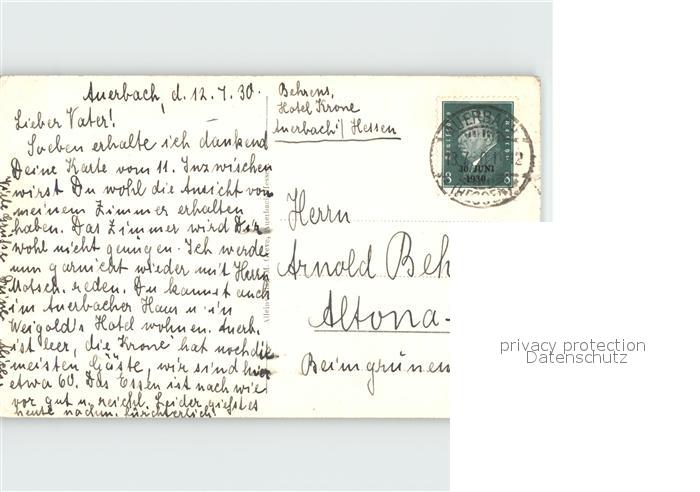 Auerbach, d. 12.7.30.
Lieber Vater!
Soeben erhalte ich dankend
Deine Karte vom 11. Inzwischen
wirst Du wohl die Ansicht von
meinem Zimmer erhalten
haben. Das Zimmer wird Dir
wohl nicht genügen. Ich werde
nun garnicht wieder mit Herrn
Motsch. reden. Du kannst auch
im Auerbacher Haus u. in
Weigold's Hotel wohnen. Auerb.
ist leer, die Krone hat noch die
meisten Gäste, wir sind hier
etwa 60. Das Essen ist nach wie
vor gut u. reichl. Leider giesst es
heute nachm. fürchterlich!
Viele Grüsse Deine
Behrens,
Hotel Krone
Auerbach / Hessen
DEUTSCHES REICH
8 8
30. JUNI
1930
AUERBACH
(HESSEN)
Herrn
Arnold Beh
Altona-
Beim grünen
privacy protection
Datenschutz